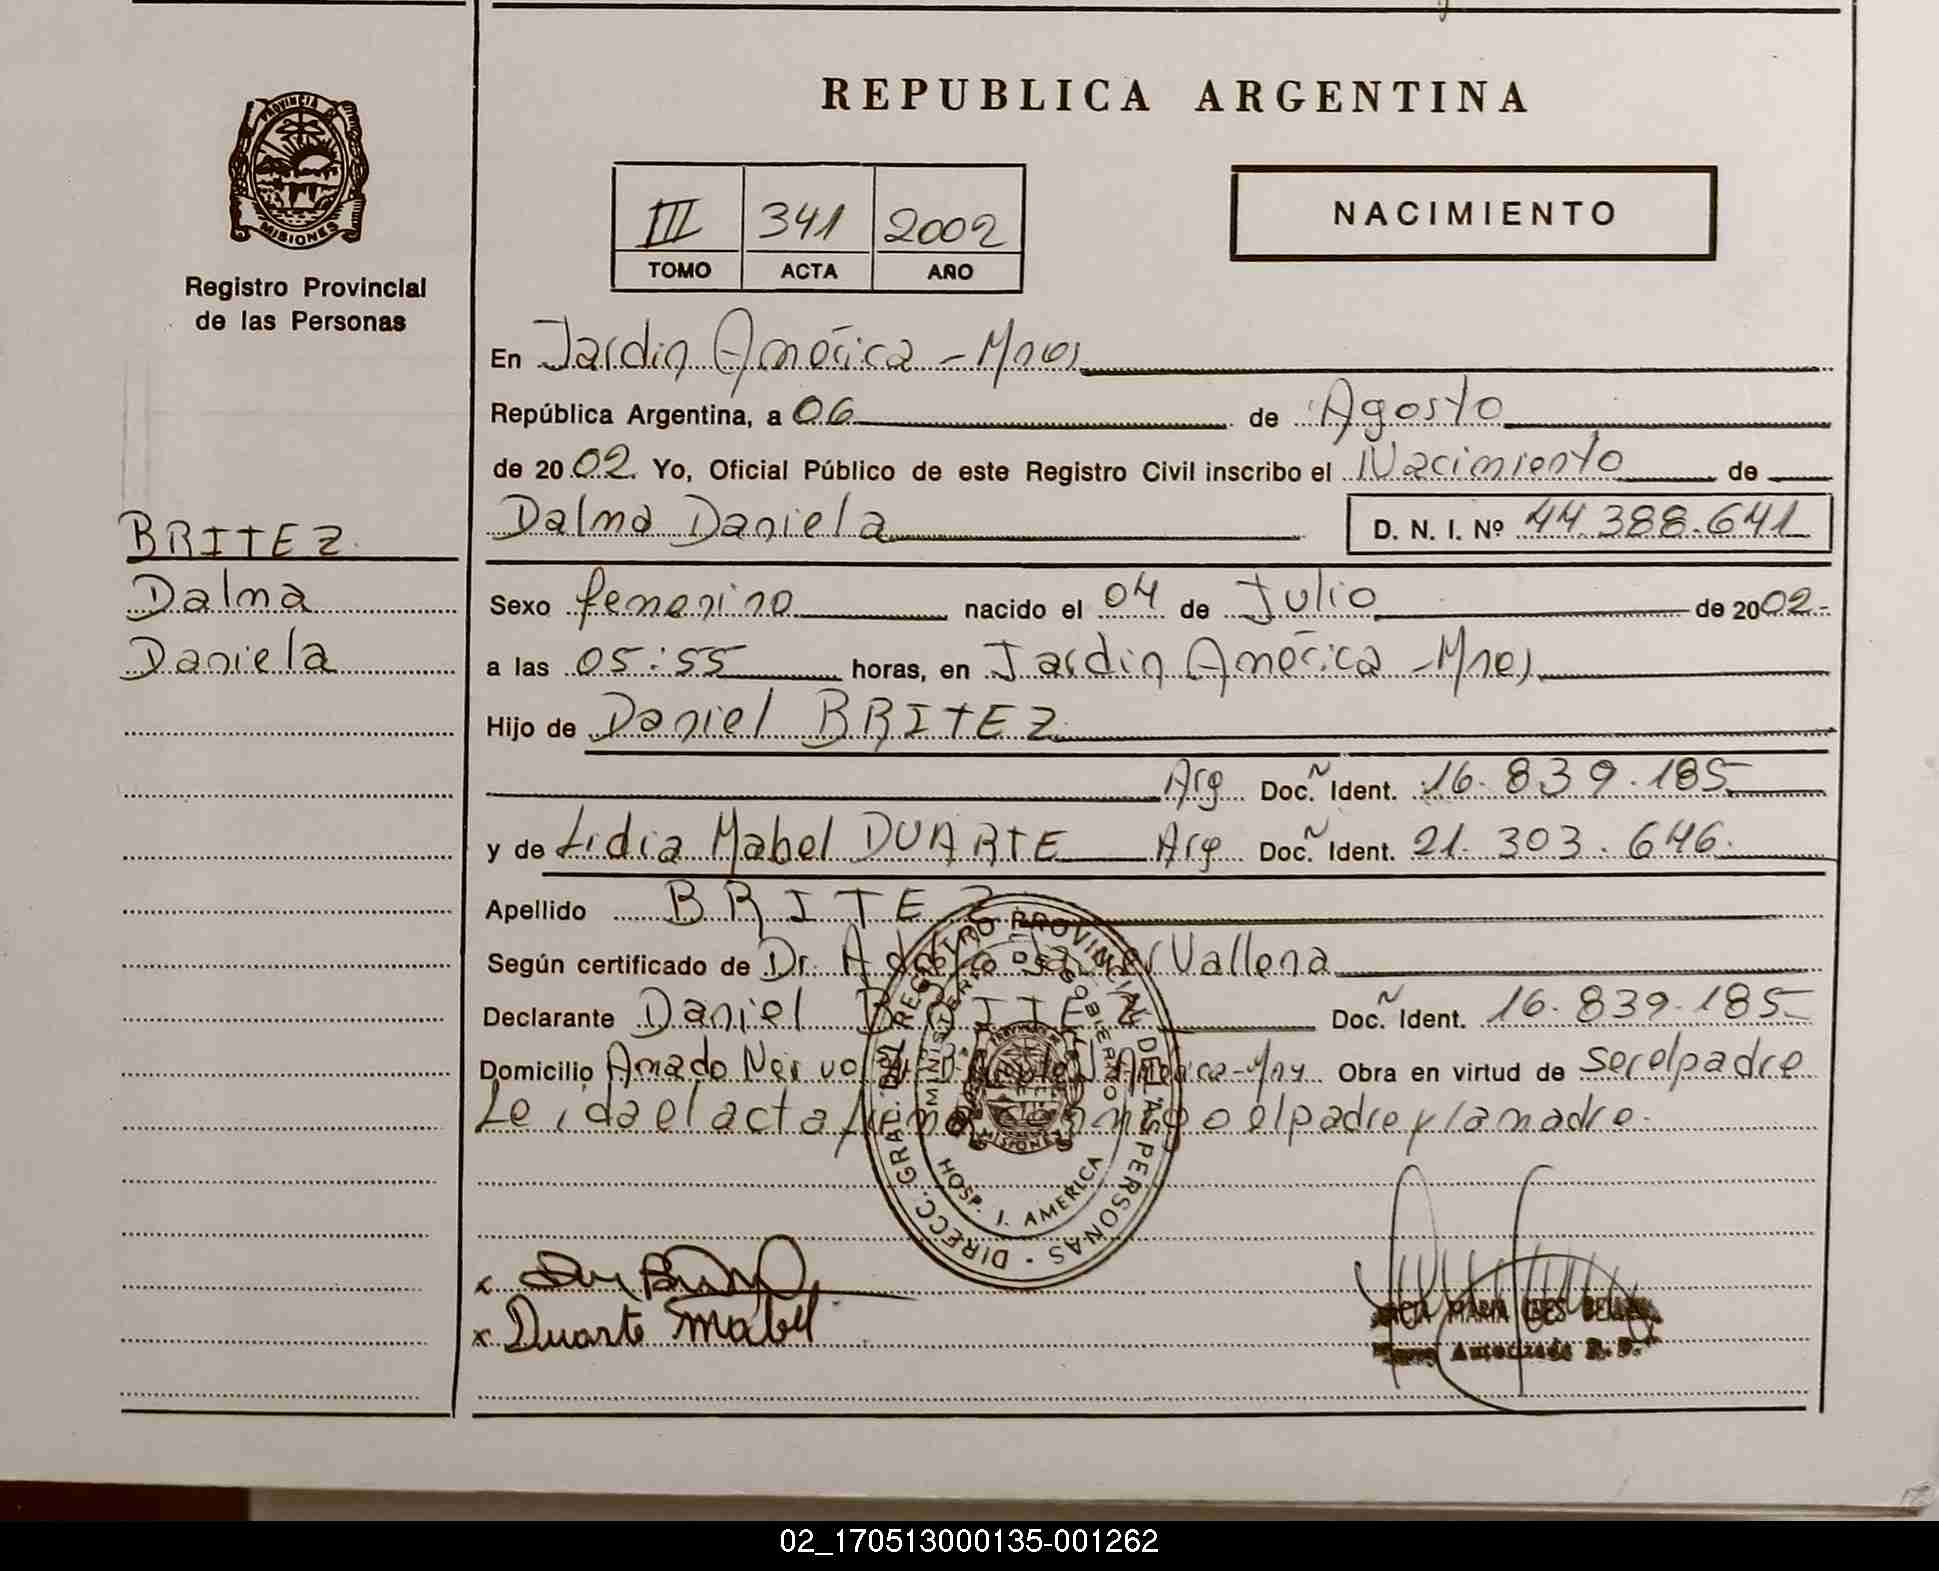 REPUBLICA ARGENTINA
PROVINCIA
MISIONES
Registro Provincial
de las Personas
III 341 2002
TOMO ACTA AÑO
NACIMIENTO
En Jardin América - Mnes
República Argentina, a 06 de Agosto
de 2002. Yo, Oficial Público de este Registro Civil inscribo el Nacimiento de
Dalma Daniela D. N. I. Nº 44.388.641
BRITEZ
Dalma
Daniela
Sexo femenino nacido el 04 de Julio de 2002-
a las 05:55 horas, en Jardin América - Mnes
Hijo de Daniel BRITEZ
Arg Doc. Ident. 16.839.185
y de Lidia Mabel DUARTE Arg Doc. Ident. 21.303.646.
Apellido BRITEZ
Según certificado de Dr. Vallena
Declarante Daniel BRITEZ Doc. Ident. 16.839.185
Domicilio Amado Nervo América-Mns Obra en virtud de ser el padre
Leida el acta firma conmigo el padre y la madre.
DIRECC. GRAL. DEL REGISTRO PROVINCIAL DE LAS PERSONAS
MINISTERIO DE GOBIERNO
MISIONES
HOSP. J. AMERICA
x
x Duarte Mabel
MARIA INES
Autorizada R. P.
02_170513000135-001262